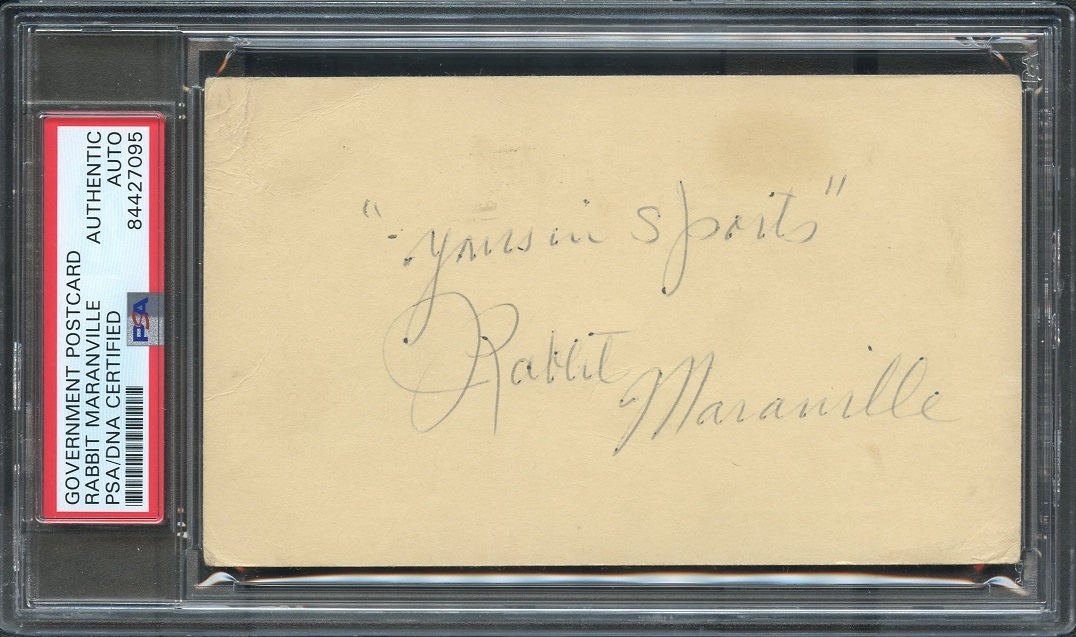 GOVERNMENT POSTCARD
RABBIT MARANVILLE
PSA/DNA CERTIFIED
AUTHENTIC
AUTO
84427095
PSA
"yours in sports"
Rabbit Maranville